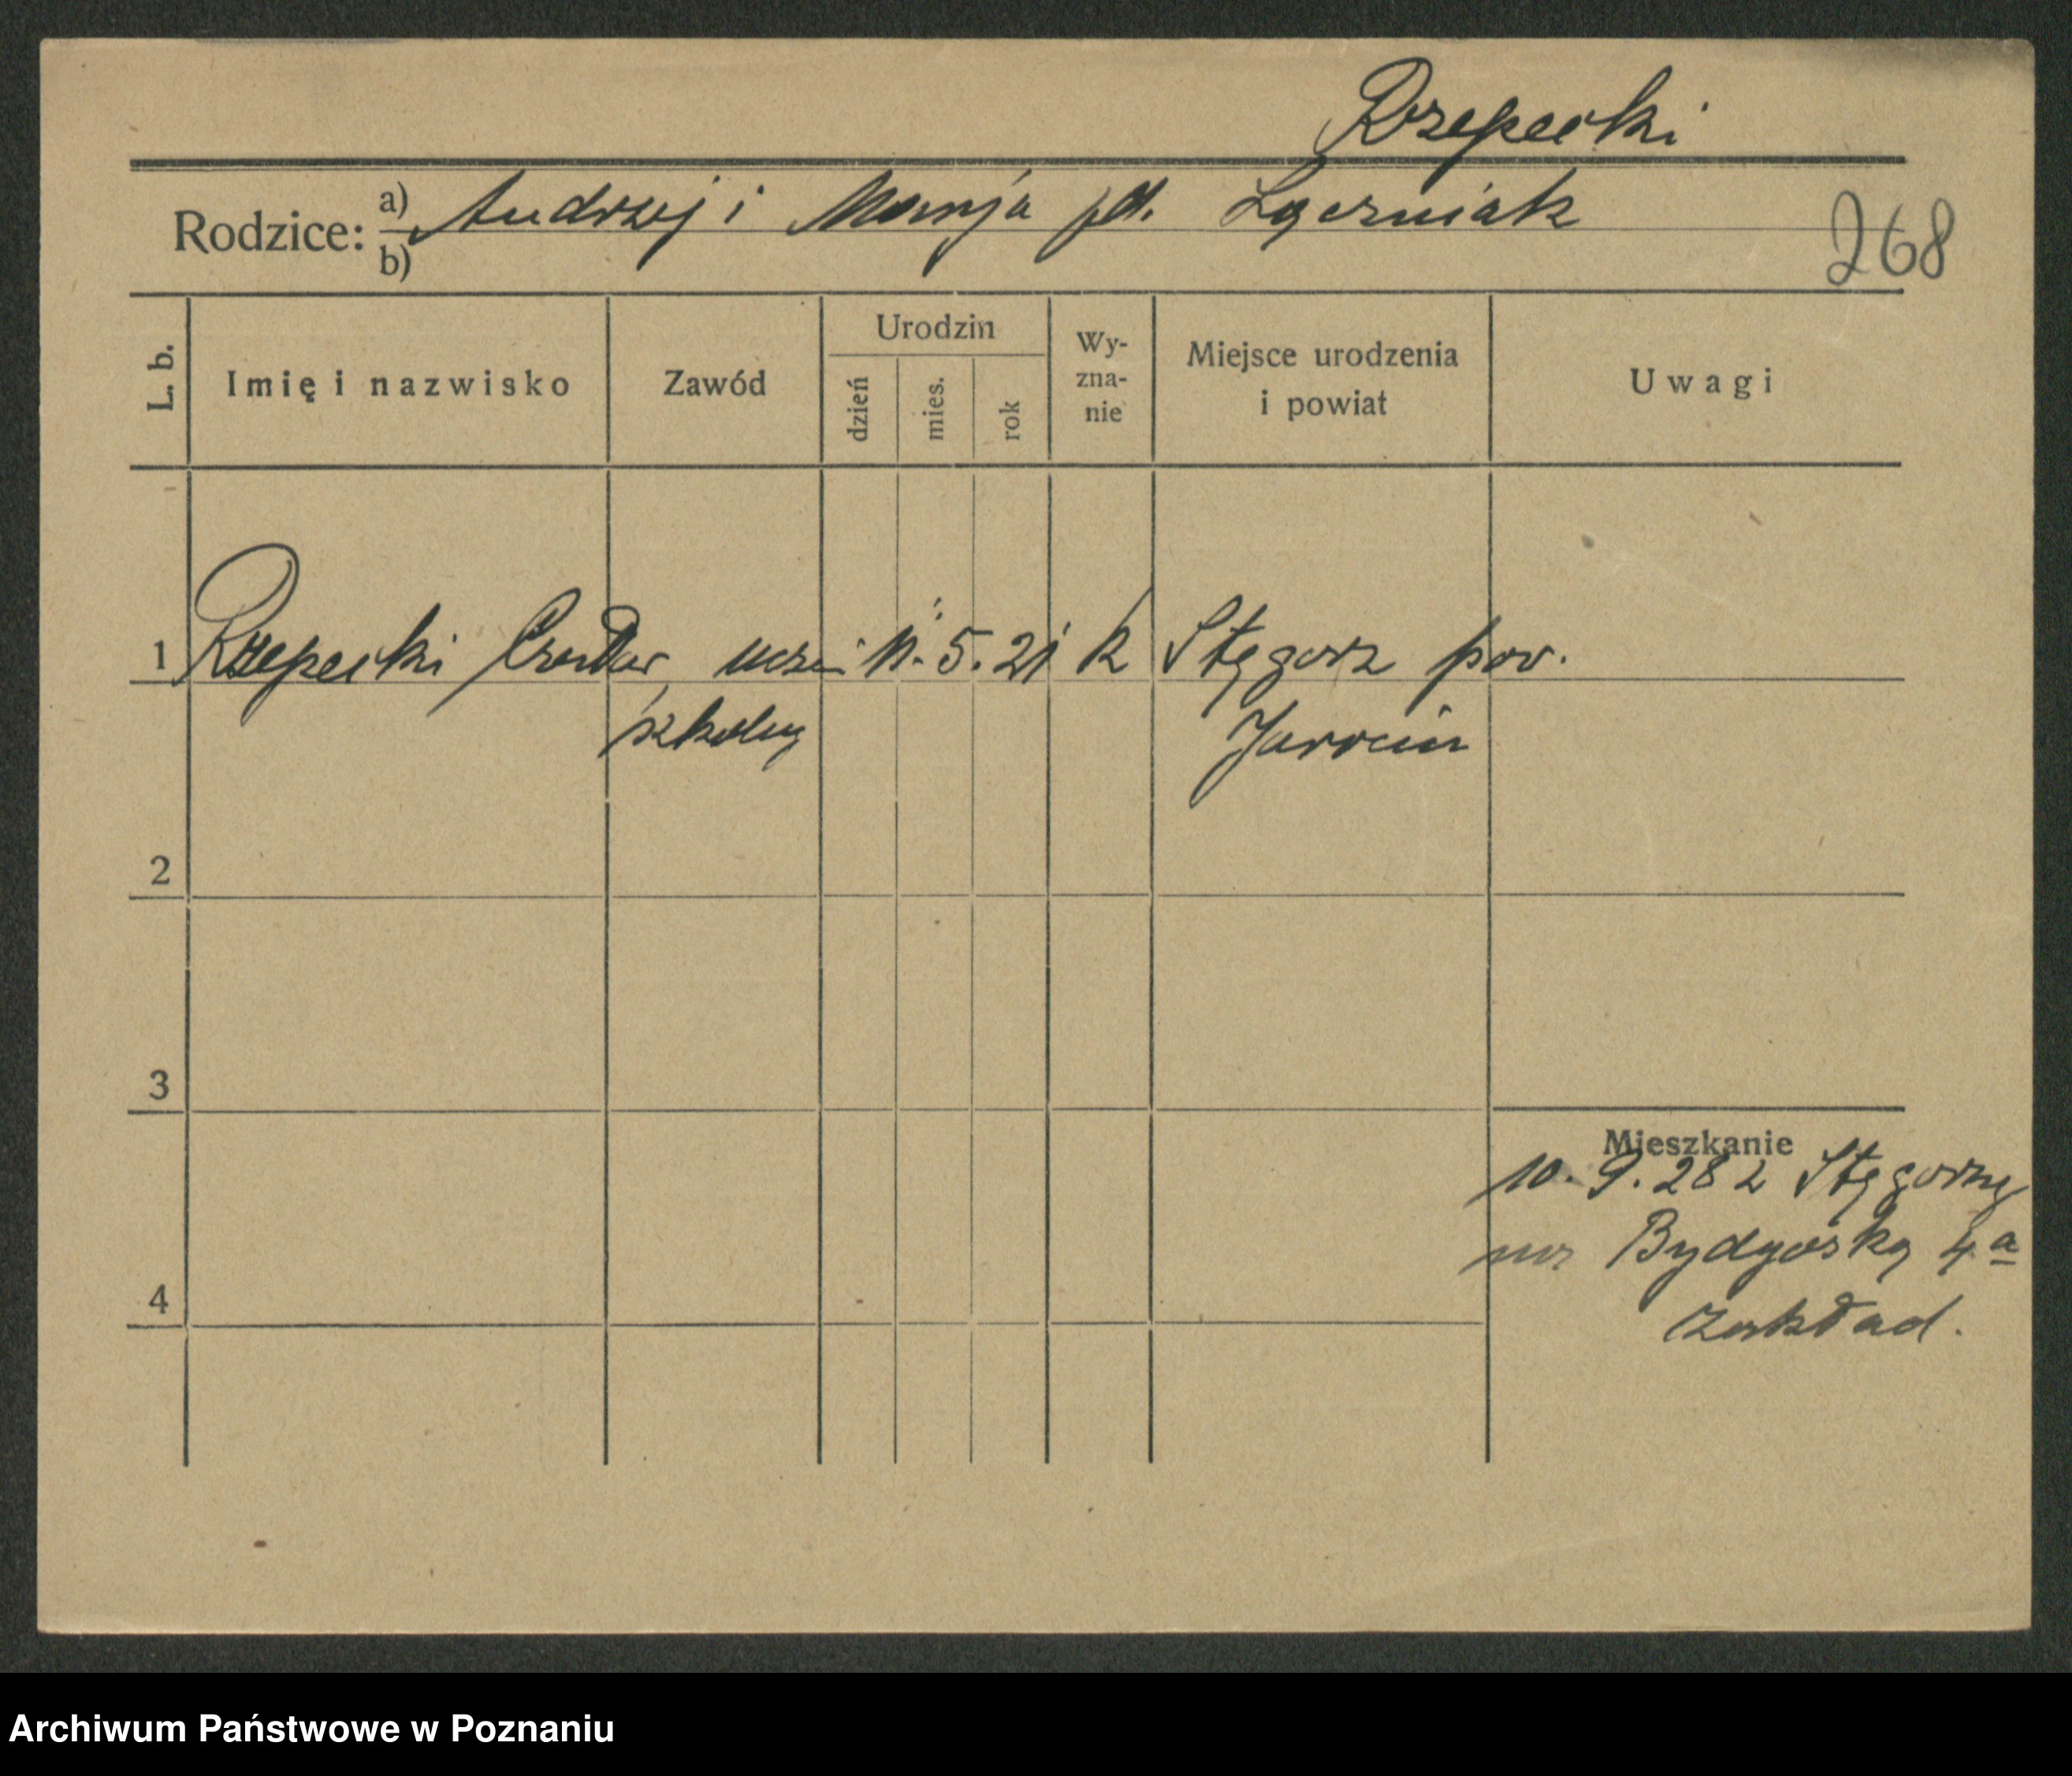 Rzepecki
Rodzice: a) Andrzej i Marja zd. Łączniak
b)
268
L. b. Imię i nazwisko Zawód Urodzin dzień mies. rok Wy-zna-nie Miejsce urodzenia i powiat Uwagi
1 Rzepecki Czesław uczeń 11. 5. 21 k Stęgosz pow.
szkolny Jarocin
2
3
Mieszkanie
10. 9. 28 z Stęgosza
na Bydgoską 4a
4
zakład.
Archiwum Państwowe w Poznaniu